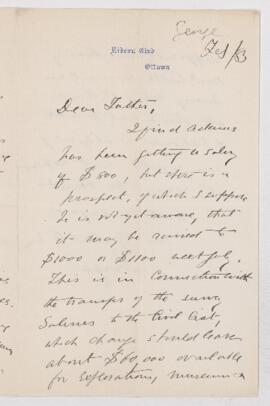 George
Feb/83
Rideau Club
Ottawa
Dear Father,
I find Adams
has been getting a salary
of $800, but there is a
prospect, of which I suppose
he is not yet aware, that
it may be raised to
$1000 or $1100 next July.
This is in connection with
the transfer of the survey
Salaries to the Civil List,
which change should leave
about $60,000 available
for explorations, museum &